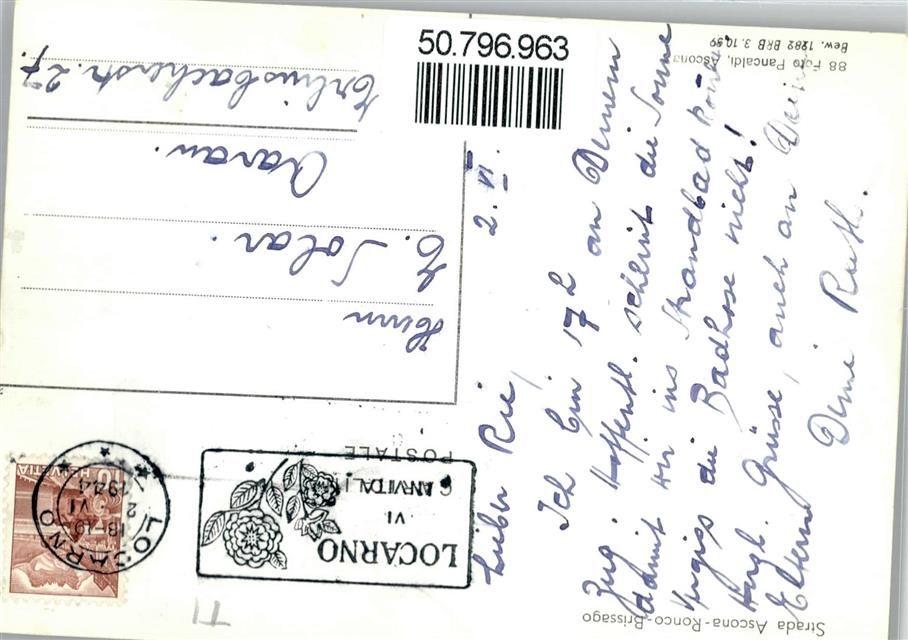 50.796.963
Strada Ascona-Ronco-Brissago
88 Foto Pancaldi, Ascona
Bew. 1282 BRB 3.10.39
2. VI.
Lieber Rie,
Ich bin 17 h an Deinem
Zug. Hoffentl. scheint die Sonne
damit wir ins Strandbad könn.
Vergiss die Badhose nicht!
Hrzl. Grüsse, auch an Deine
Eltern
Deine Ruth.
LOCARNO
VI
INVITA
CARTA
POSTALE
LOCARNO
18-19
2 VI
1944
HELVETIA 10
Herrn
E. Solar.
Aarau.
Erlinsbacherstr. 27.
TI